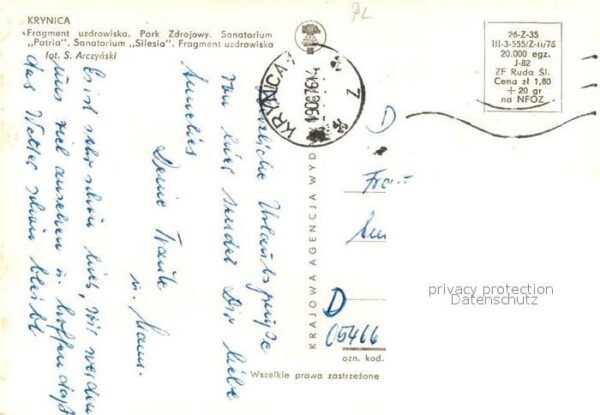 KRYNICA
Fragment uzdrowiska. Park Zdrojowy. Sanatorium
„Patria". Sanatorium „Silesia". Fragment uzdrowiska
fot. S. Arczyński
PL
26-Z-35
III-3-555/Z-II/76
20.000 egz.
J-82
ZF Ruda Sl.
Cena zł 1,80
+ 20 gr
na NFOZ
KRYNICA
Z
Herzliche Urlaubsgrüße
von hier sendet Dir liebe
Annelies
Deine Traute
u. Hans.
Es ist sehr schön hier, wir werden
uns viel ansehen u. hoffen daß
das Wetter schön bleibt
KRAJOWA AGENCJA WYD
D
Frau
D
05466
ozn. kod.
Wszelkie prawa zastrzeżone
privacy protection
Datenschutz